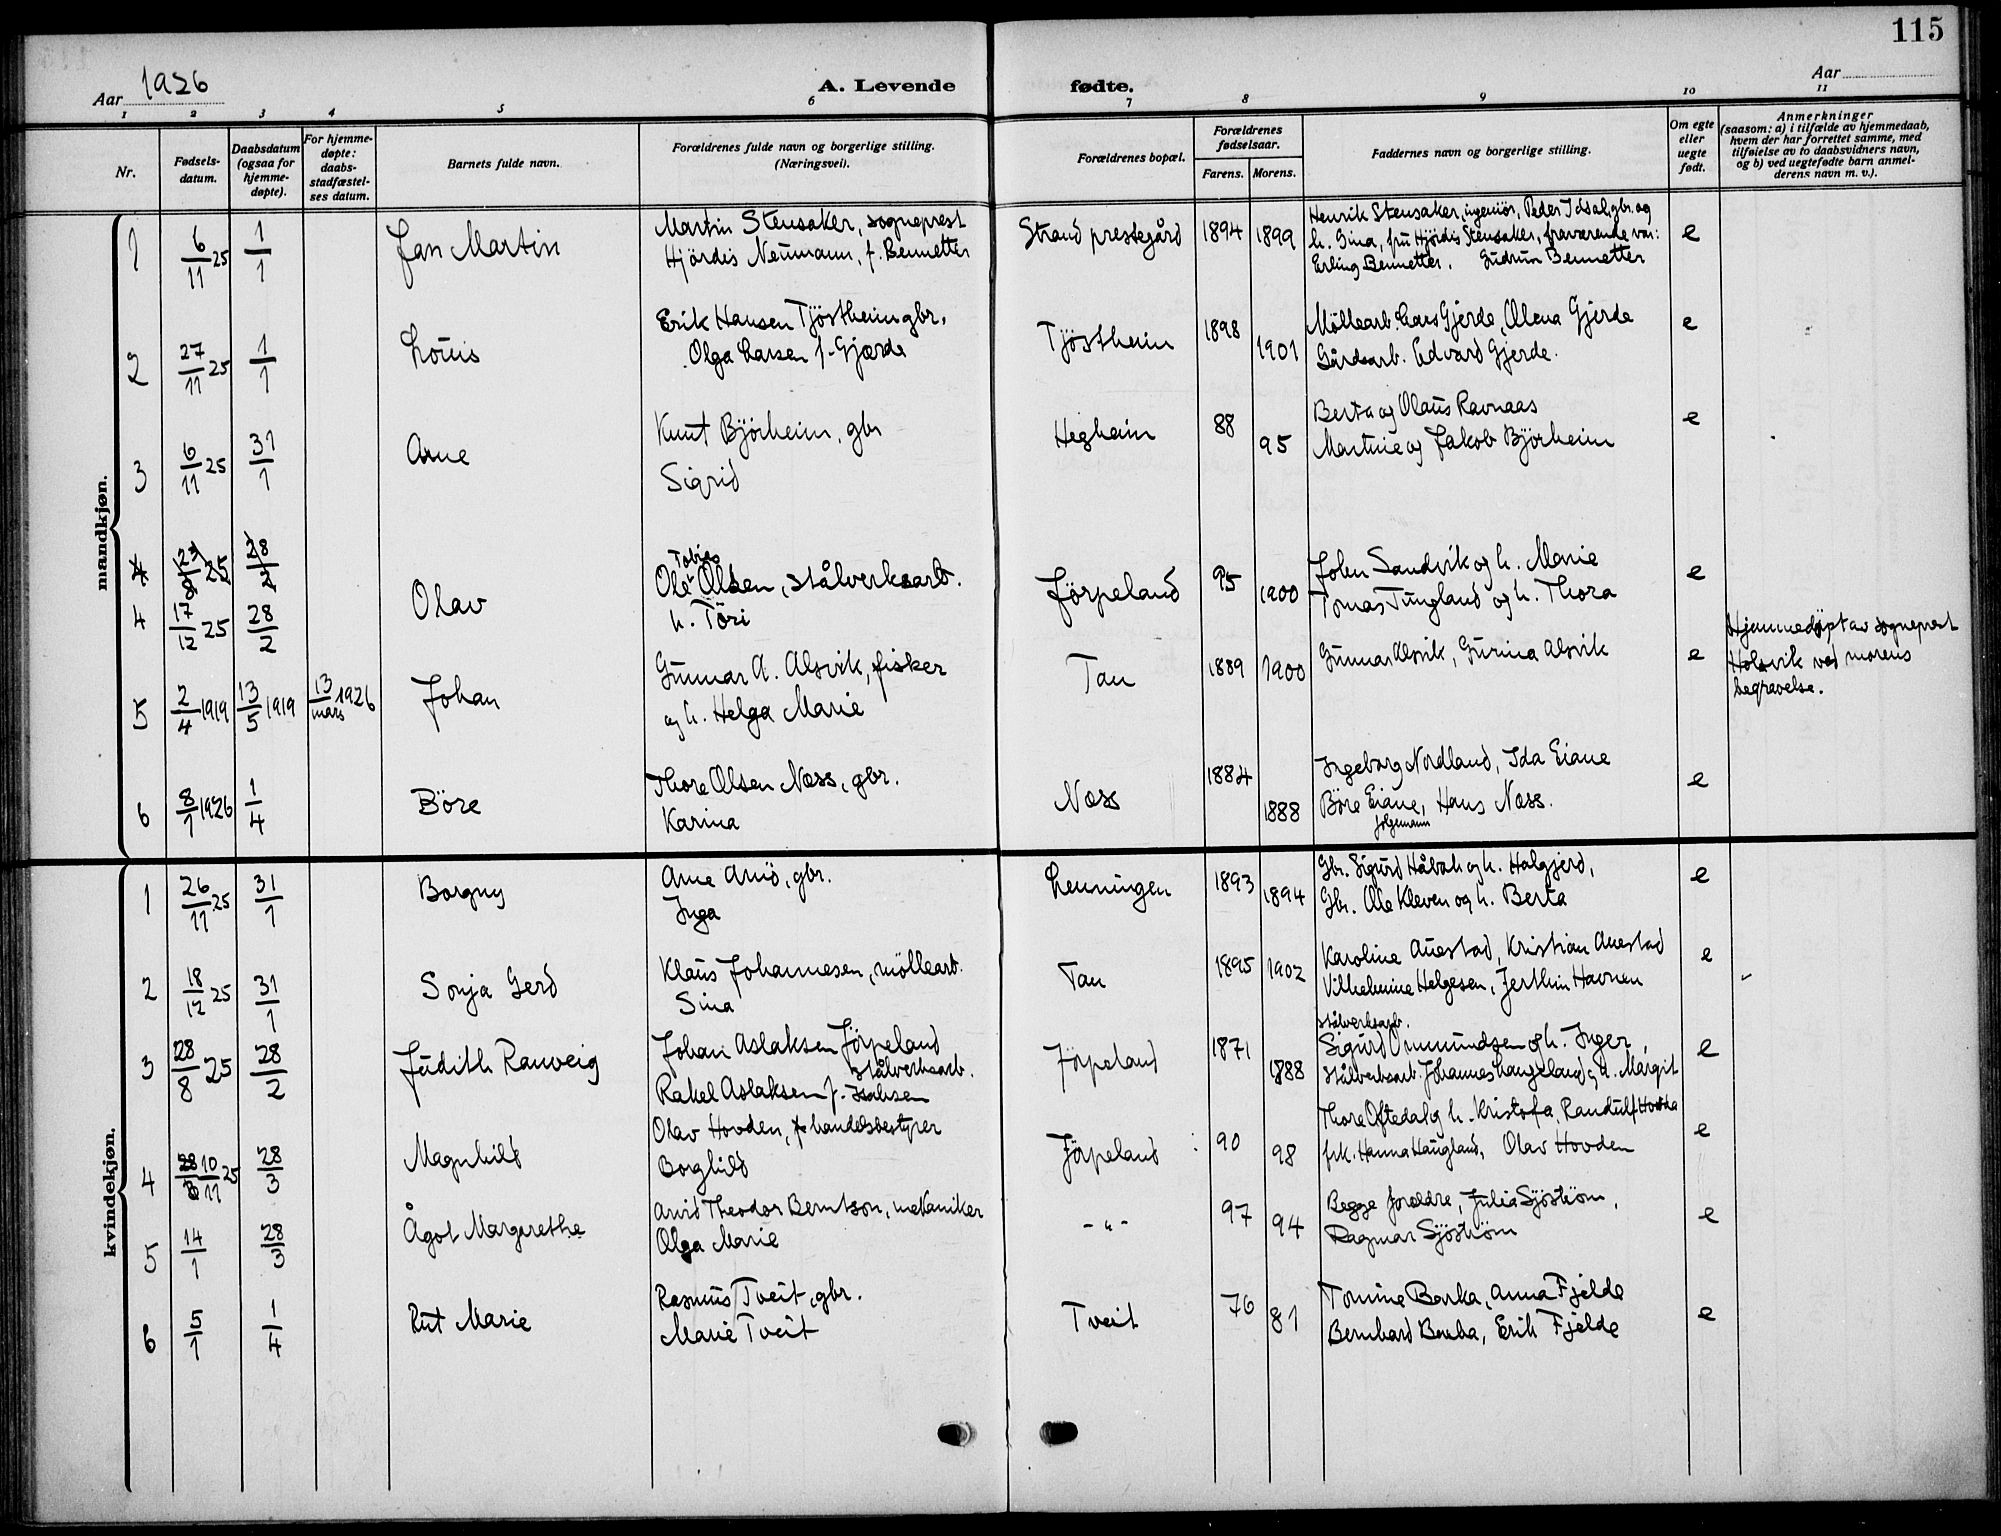 115
Aar 1926
A. Levende fødte.
Aar
1 2 3 4 5 6 7 8 9 10 11
Nr.
Fødsels-
datum.
Daabsdatum
(ogsaa for
hjemme-
døpte).
For hjemme-
døpte:
daabs-
stadfæstel-
ses datum.
Barnets fulde navn.
Forældrenes fulde navn og borgerlige stilling.
(Næringsvei).
Forældrenes bopæl.
Forældrenes
fødselsaar.
Farens. Morens.
Faddernes navn og borgerlige stilling.
Om egte
eller
uegte
født.
Anmerkninger
(saasom: a) i tilfælde av hjemmedaab,
hvem der har forrettet samme, med
tilføielse av to daabsvidners navn,
og b) ved uegtefødte barn anmel-
derens navn m. v.).
mandkjøn.
1 6/11 25 1/1 Jan Martin
Martin Stensaker, sogneprest
Hjördis Neumann, f. Bennetter
Strand prestegård 1894 1899
Henrik Stensaker, ingeniør, Peder Idsal, gbr. og
h. Gina, fru Hjördis Stensaker, fraværende var:
Erling Bennetter. Gudrun Bennetter
e
2 27/11 25 1/1 Louis
Erik Hansen Tjöstheim gbr.
Olga Larsen f. Gjærde
Tjöstheim 1898 1901
Møllearb. Lars Gjerde, Olena Gjerde
Gårdsarb. Edvard Gjerde.
e
3 6/11 25 31/1 Arne
Knut Björheim, gbr
Sigrid
Hegheim 88 95
Berta og Olaus Ravnaas
Martine og Jakob Björheim
e
4 25 28/2
4 17/12 25 28/2 Olav
Tobias
Ole Olsen, stålverksarb.
h. Töri
Jørpeland 95 1900
John Sandvik og h. Marie
Tomas Tungland og h. Thora
e
5 2/4 1919 13/5 1919 13/mars 1926 Johan
Gunnar A. Alsvik, fisker
og h. Helga Marie
Tau 1889 1900
Gunnar Alsvik, Gurina Alsvik
e
Hjemmedöpt av sogneprest
Holsvik ved morens
begravelse.
6 8/1 1926 1/4 Böre
Thore Olsen Næss, gbr.
Karina
Næss 1884 1888
Ingeborg Nordland, Ida Eiane
Böre Eiane, Hans Næss.
e
kvindekjøn.
1 26/11 25 31/1 Borgny
Arne Amö, gbr.
Inga
Leuningen 1893 1894
Gbr. Sigurd Håbak og h. Halgjerd,
Gbr. Ole Kleven og h. Berta
e
2 18/12 25 31/1 Sonja Gerd
Klaus Johannesen, möllearb.
Sina
Tau 1895 1902
Karoline Auestad, Kristian Auestad
Vilhelmine Helgesen, Jerthin Havnen
e
3 28/8 25 28/2 Judith Ranveig
Johan Aslaksen Jörpeland
stålverksarb.
Rakel Aslaksen f. Isaksen
Jörpeland 1871 1888
stålverksarb.
Sigurd Ommundsen og h. Inger,
stålverksarb. Johannes Langeland og h. Margit
e
4 10/11 25 28/3 Magnhild
Olav Hovden, handelsbestyrer
Borghild
Jörpeland 90 98
Thore Oftedal og h. Kristofa, Randulf Hovda
frk. Hanna Haugland, Olav Hovden
e
5 14/1 28/3 Ågot Margrethe
Arvid Theodor Berntson, mekaniker
Olga Marie
-"- 97 94
Begge foreldre, Julia Sjöström,
Ragnar Sjöström
e
6 5/1 1/4 Rut Marie
Rasmus Tveit, gbr.
Marie Tveit
Tveit 76 81
Tomine Barka, Anna Fjelde
Bernhard Barka, Erik Fjelde
e